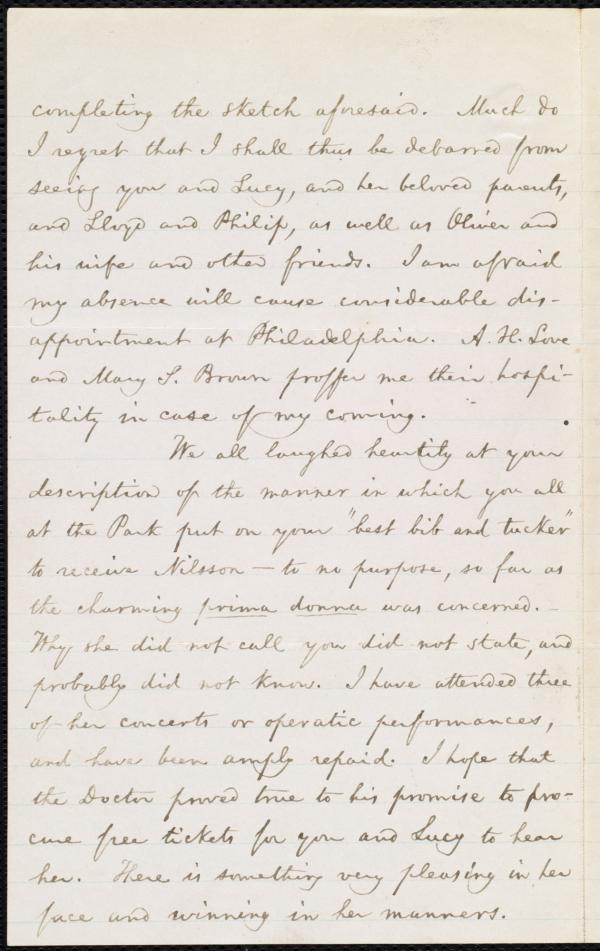 completing the sketch aforesaid. Much do
I regret that I shall thus be debarred from
seeing you and Lucy, and her beloved parents,
and Lloyd and Philip, as well as Oliver and
his wife and other friends. I am afraid
my absence will cause considerable dis-
appointment at Philadelphia. A. H. Love
and Mary S. Brown proffer me their hospi-
tality in case of my coming.
We all laughed heartily at your
description of the manner in which you all
at the Park put on your "best bib and tucker"
to receive Nilsson — to no purpose, so far as
the charming prima donna was concerned. —
Why she did not call you did not state, and
probably did not know. I have attended three
of her concerts or operatic performances,
and have been amply repaid. I hope that
the Doctor proved true to his promise to pro-
cure free tickets for you and Lucy to hear
her. There is something very pleasing in her
face and winning in her manners.